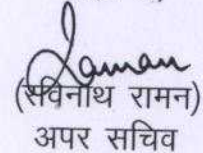 Raman
(सविनाथ रामन)
अपर सचिव